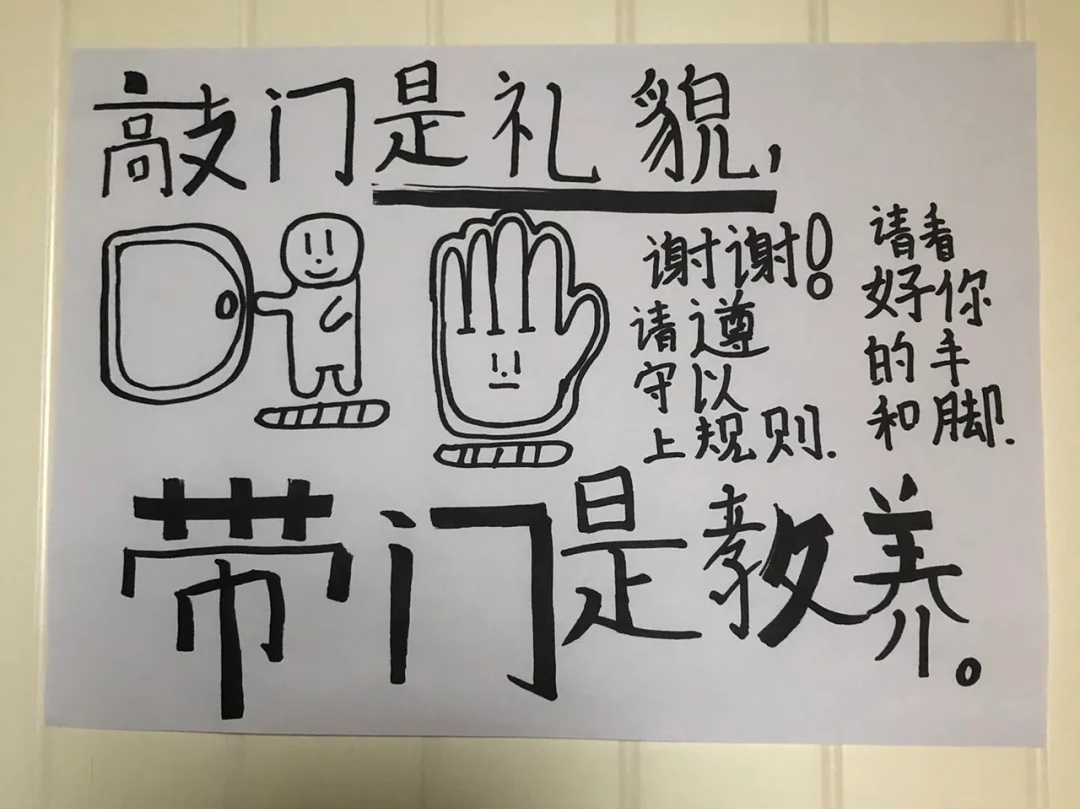 敲门是礼貌,
谢谢!
请遵
守以
上规则.
请看
好你
的手
和脚.
带门是教养。